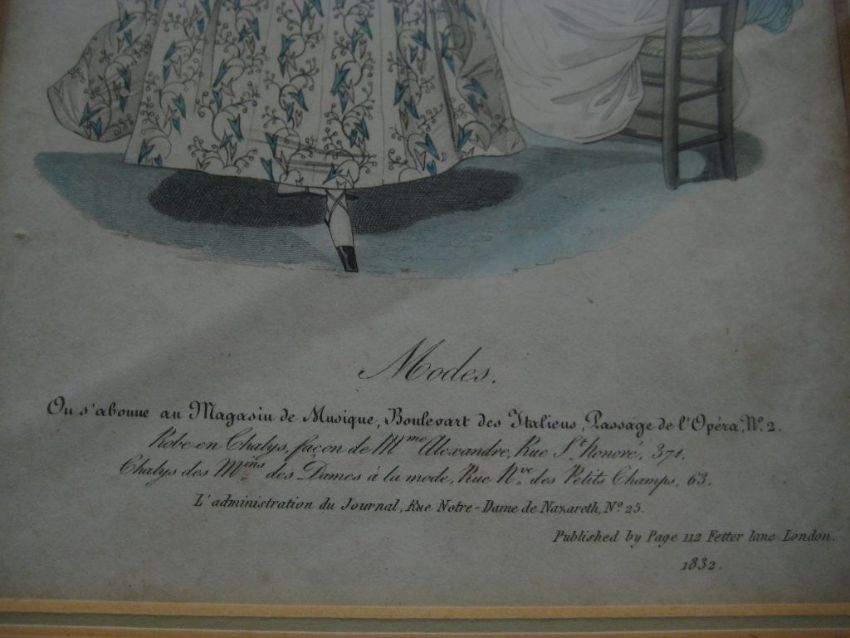 Modes.
On s'abonne au Magasin de Musique, Boulevart des Italiens, Passage de l'Opéra, N.° 2.
Robe en Chalys, façon de M.me Alexandre, Rue S.t Honoré, 371.
Chalys des M.ins des Dames à la mode, Rue N.ve des Petits Champs, 63.
L'administration du Journal, Rue Notre-Dame de Nazareth, N.° 25.
Published by Page 112 Fetter lane London.
1832.